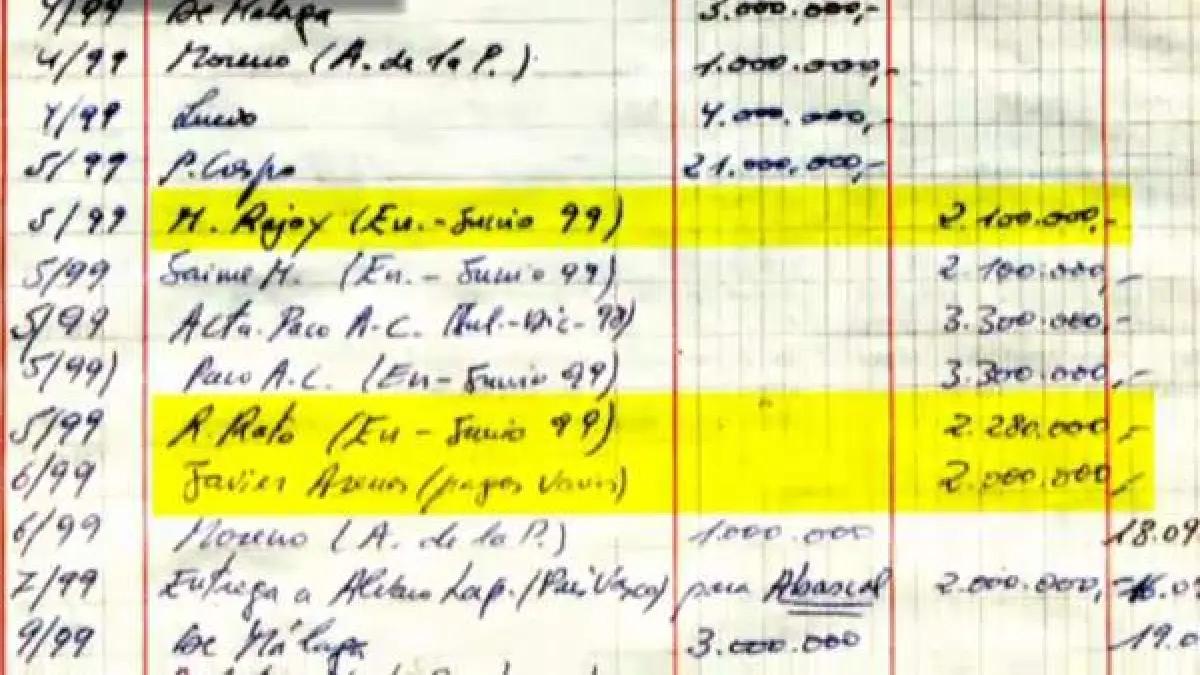 4/99 De Malaga 3.000.000,-
4/99 Moreno (A. de la P.) 1.000.000,-
4/99 4.000.000,-
5/99 P. Crespo 21.000.000,-
5/99 M. Rajoy (En.-Junio 99) 2.100.000,-
5/99 Jaime M. (En.- Junio 99) 2.100.000,-
5/99 Acta. Paco A-C. (Jul.-Dic-98) 3.300.000,-
5/99) Paco A.C. (En- Junio 99) 3.300.000,-
5/99 R. Rato (En - Junio 99) 2.280.000,-
6/99 Javier Arenas (pagos varios) 2.000.000,-
6/99 Moreno (A. de la P.) 1.000.000 18.09
7/99 Entrega a Alvaro Lap. (País Vasco) para Abascal 2.000.000,-
9/99 De Málaga 3.000.000 19.0